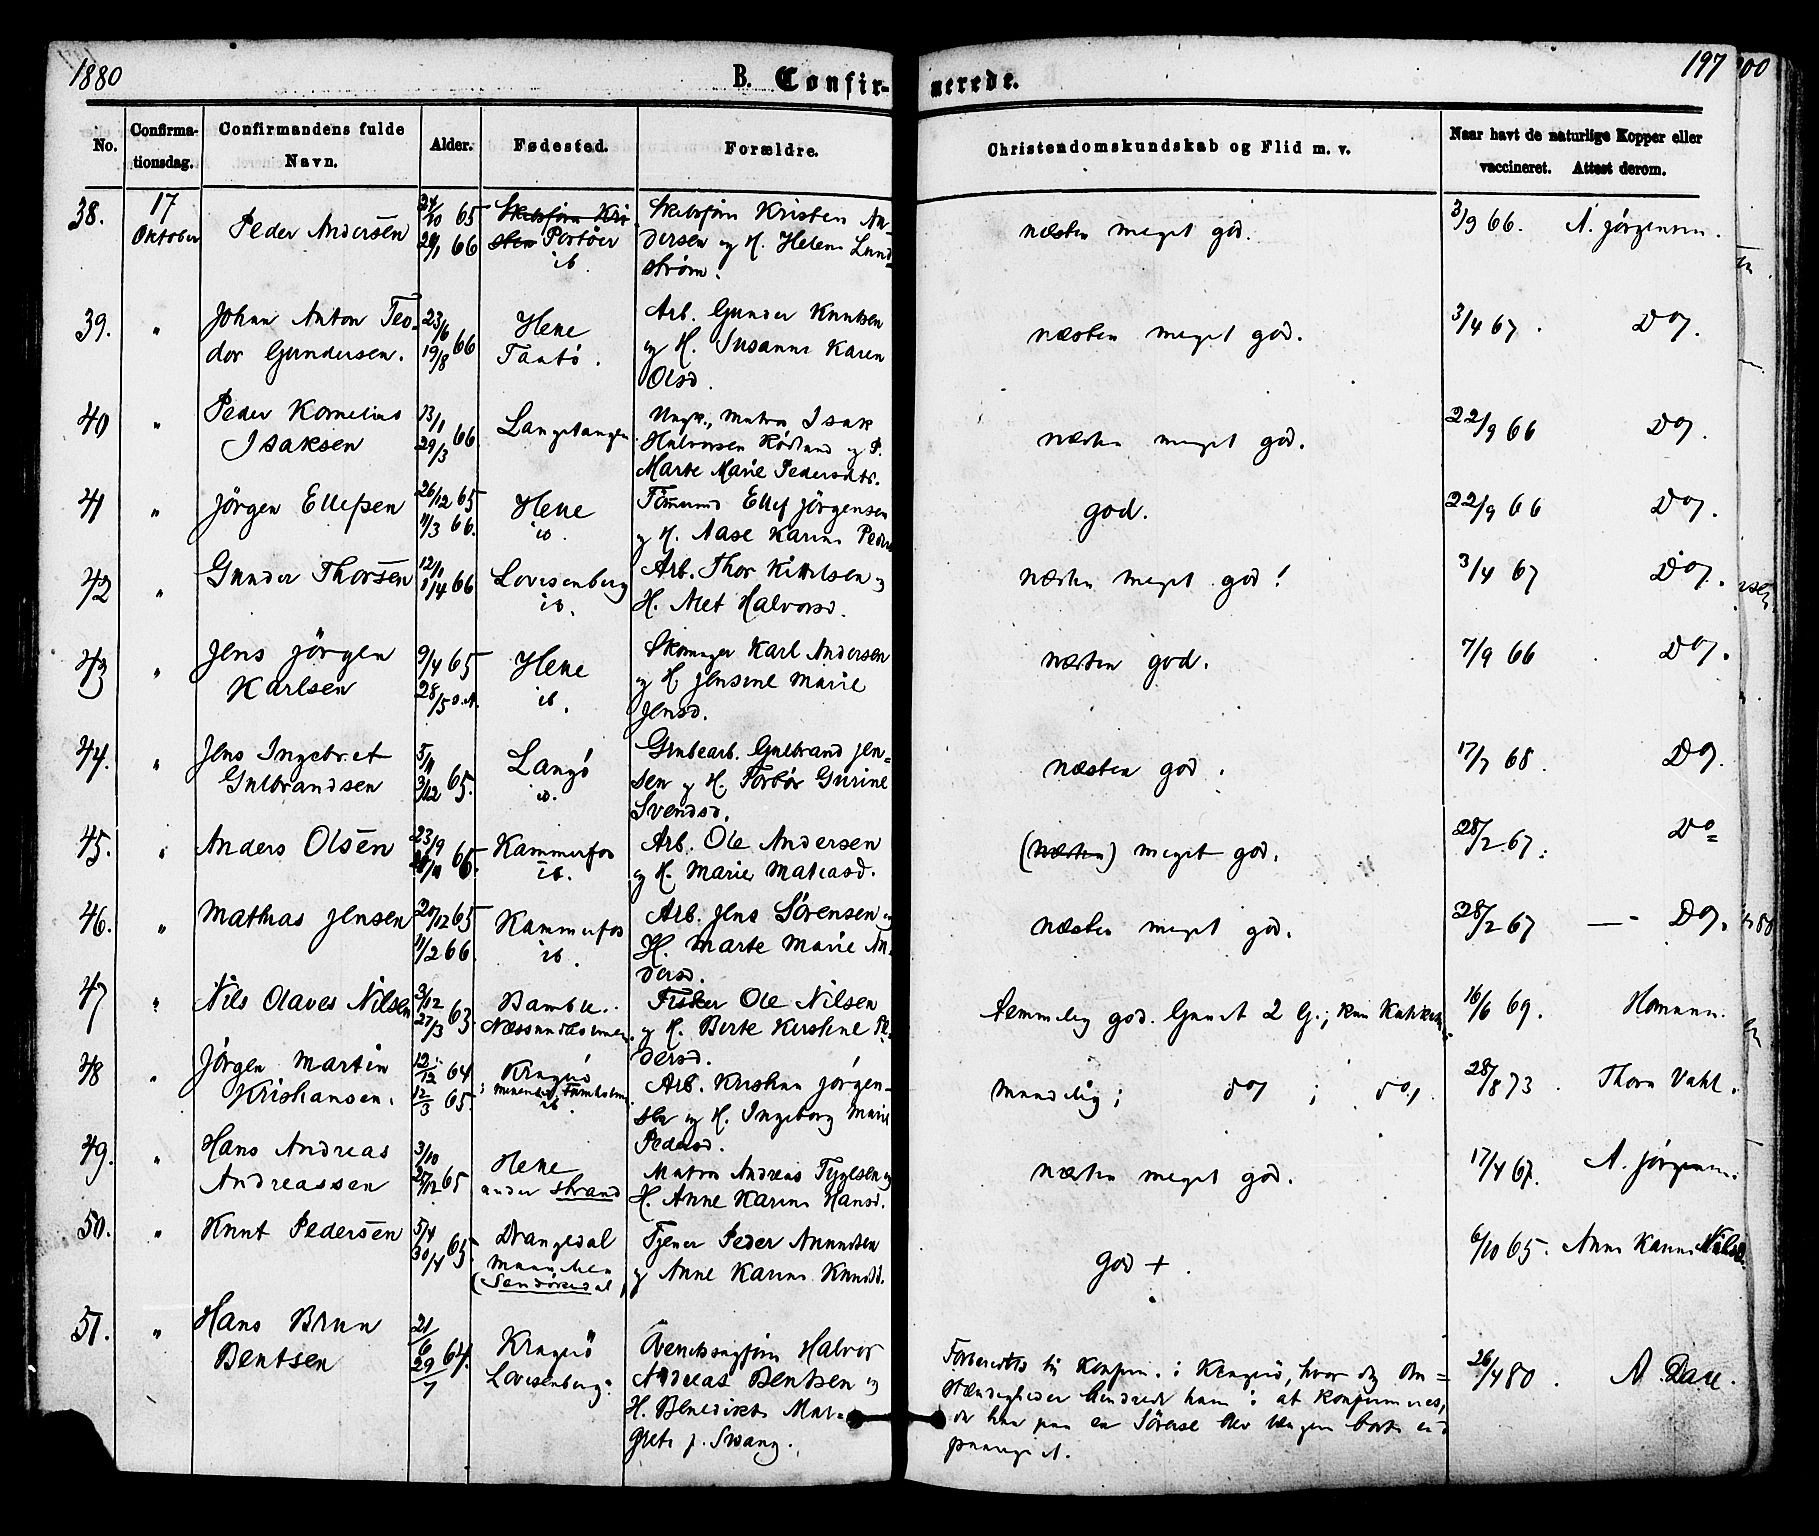 1880
B. Confir-
merede.
197
No.
Confirma-
tionsdag.
Confirmandens fulde
Navn.
Alder.
Fødested.
Forældre.
Christendomskundskab og Flid m. v.
Naar havt de naturlige Kopper eller
vaccineret. Attest derom.
38.
17
Oktober
Peder Andersen
24/10 65
66
Portøer
ib.
Skibsfører Kristen An-
dersen og H. Helene Lund-
strøm.
næsten meget god.
3/9 66. A. Jörgensen.
39.
"
Johan Anton Teo-
dor Gundersen.
23/6
19/8 66
Helle
Taatö.
Arb. Gunder Knutsen
og H. Susanne Karen
Olsd.
næsten meget god.
3/4 67. Do.
40
"
Peder Kornelius
Isaksen
13/1
29/3 66
Langetangen
Ungk., Matros Isak
Halvorsen og P.
Marte Marie Pedersdtr.
næsten meget god.
22/9 66 Do.
41
"
Jörgen Ellefsen
26/12 65
11/3 66.
Helle
ib.
Tömmermd Ellef Jörgensen
og H. Aase Karine Peders
god.
22/9 66 Do.
42
"
Gunder Thorsen
12/1
1/4 66
Lovisenberg
ib.
Arb. Thor Kittilsen og
H. Alet Halvorsd.
næsten meget god!
3/4 67 Do.
43
"
Jens Jörgen
Karlsen
9/4 65
28/5 s. A.
Helle
ib.
Skomager Karl Andersen
og H. Jensine Marie
Jensd.
næsten god.
7/9 66 Do.
44.
"
Jens Ingebret
Gulbrandsen
5/11
3/12 65.
Langö
ib.
Grubearb. Gulbrand Jen-
sen og H. Torbör Gurine
Svendsd.
næsten god.
17/7 68. Do.
45.
"
Anders Olsen
23/9
Kammerfos
ib.
Arb. Ole Andersen
og H. Marie Matiasd.
(næsten) meget god.
28/2 67. Do
46.
"
Mathias Jensen
20/12 65
11/2 66.
Kammerfos
ib.
Arb. Jens Sörensen og
H. Marte Marie An-
dersd.
næsten meget god.
28/2 67 — Do.
47
"
Nils Olaves Nilsen
3/12
27/3 63
Bamble.
Fisker Ole Nilsen
og H. Berte Kirstine Pe-
dersd.
temmelig god. Gaaet 2 G.; kun
16/6 69. Homann.
48
"
Jörgen Martin
Kristiansen.
12/12 64
12/3 65.
Kragerö
ib.
Arb. Kristian Jörgen-
sen og H. Ingeborg Marie
Pedersd.
Maadelig; do; do.
28/8 73 Thora Vahl.
49.
"
Hans Andreas
Andreassen
3/10
27/12 65
Helle
under Strand
Matros Andreas Tygesen og
H. Anne Karine Hansd.
næsten meget god.
17/4 67. A. Jörgensen.
50.
"
Knut Pedersen
5/4
30/4 65.
Drangedal
(Sandökedal)
Tjener Peder Anundsen
og Anne Karine Knudsd.
god +.
6/10 65. Anne Karine Nilsd.
51.
"
Hans Brun
Bentsen
21/6
29/7 64.
Kragerö
Lovisenberg.
Halvor
Andreas Bentsen og
H. Benedikte Mar-
grete f. Svang.
Forberedtes til Konfirm. i Kragerö, hvor dog Om-
stændigheder hindrede ham i at konfirmeres,
da han paa en Söreise blev længere borte end
paaregnet.
26/4 80. A. Daae.